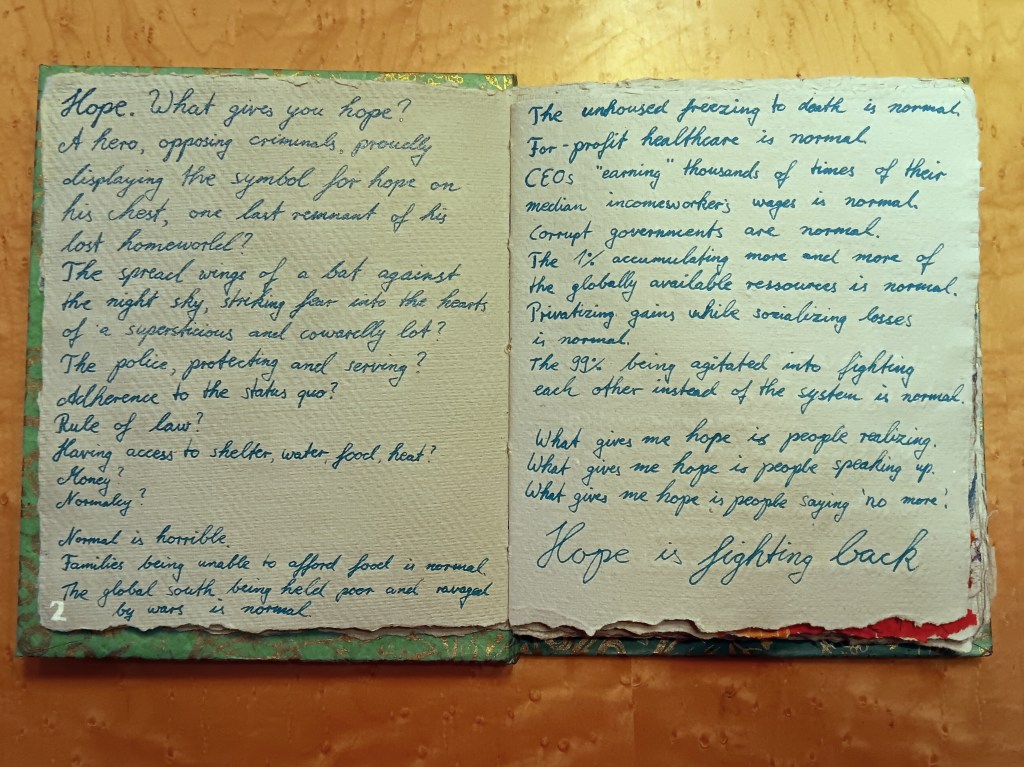 Hope. What gives you hope?
A hero, opposing criminals, proudly
displaying the symbol for hope on
his chest, one last remnant of his
lost homeworld?
The spread wings of a bat against
the night sky, striking fear into the hearts
of a supersticious and cowardly lot?
The police, protecting and serving?
Adherence to the status quo?
Rule of law?
Having access to shelter, water, food, heat?
Money?
Normalcy?
Normal is horrible.
Families being unable to afford food is normal.
The global south being held poor and ravaged
by wars is normal.
2
The unhoused freezing to death is normal.
For-profit healthcare is normal.
CEOs "earning" thousands of times of their
median incomeworker's wages is normal.
Corrupt governments are normal.
The 1% accumulating more and more of
the globally available ressources is normal.
Privatizing gains while socializing losses
is normal.
The 99% being agitated into fighting
each other instead of the system is normal.
What gives me hope is people realizing.
What gives me hope is people speaking up.
What gives me hope is people saying 'no more'.
Hope is fighting back